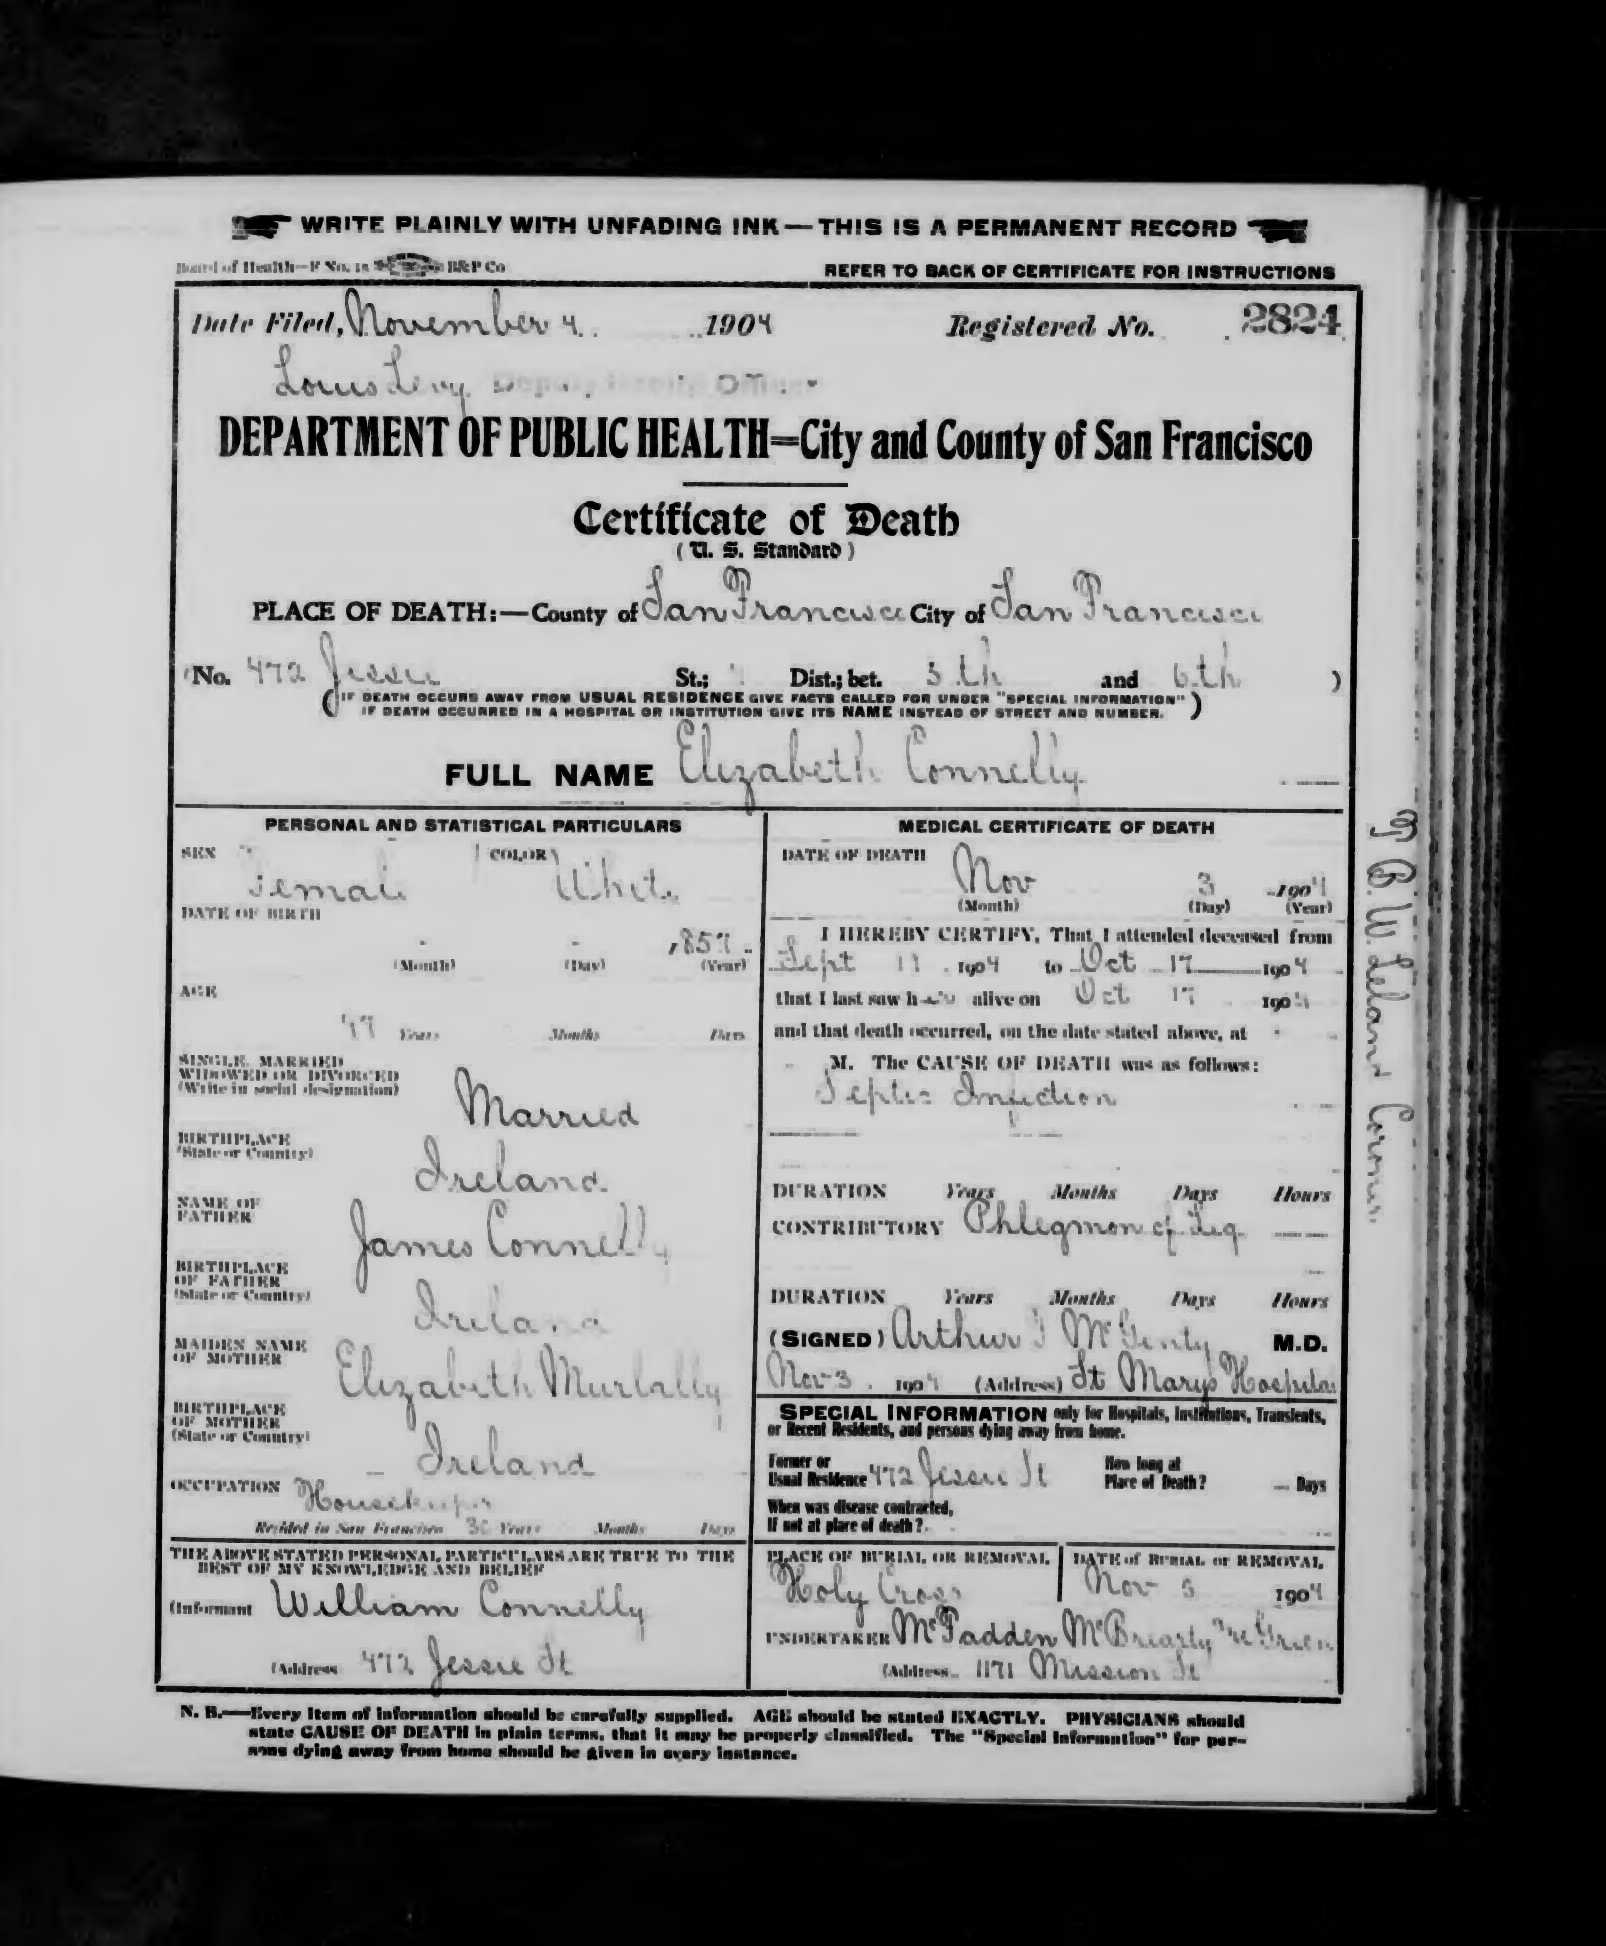 WRITE PLAINLY WITH UNFADING INK — THIS IS A PERMANENT RECORD
Board of Health—F No. 18 B&P Co
REFER TO BACK OF CERTIFICATE FOR INSTRUCTIONS
Date Filed, November 4. 1904 Registered No. 2824
Louis Levy Deputy Health Officer
DEPARTMENT OF PUBLIC HEALTH=City and County of San Francisco
Certificate of Death
(U. S. Standard)
PLACE OF DEATH:—County of San Francisco City of San Francisco
(No. 472 Jessie St.; Dist.; bet. 5th and 6th )
(IF DEATH OCCURS AWAY FROM USUAL RESIDENCE GIVE FACTS CALLED FOR UNDER "SPECIAL INFORMATION"
IF DEATH OCCURRED IN A HOSPITAL OR INSTITUTION GIVE ITS NAME INSTEAD OF STREET AND NUMBER.)
FULL NAME Elizabeth Connelly
PERSONAL AND STATISTICAL PARTICULARS
SEX Female COLOR White
DATE OF BIRTH
1857
(Month) (Day) (Year)
AGE
47 Years Months Days
SINGLE, MARRIED
WIDOWED OR DIVORCED
(Write in social designation)
Married
BIRTHPLACE
(State or Country)
Ireland
NAME OF
FATHER
James Connelly
BIRTHPLACE
OF FATHER
(State or Country)
Ireland
MAIDEN NAME
OF MOTHER
Elizabeth
BIRTHPLACE
OF MOTHER
(State or Country)
Ireland
OCCUPATION Housekeeper
Resided in San Francisco 30 Years Months Days
THE ABOVE STATED PERSONAL PARTICULARS ARE TRUE TO THE
BEST OF MY KNOWLEDGE AND BELIEF
(Informant William Connelly
(Address 472 Jessie St
MEDICAL CERTIFICATE OF DEATH
DATE OF DEATH
Nov 3 1904
(Month) (Day) (Year)
I HEREBY CERTIFY, That I attended deceased from
Sept 1904 to Oct 17 1904
that I last saw her alive on Oct 17 1904
and that death occurred, on the date stated above, at
M. The CAUSE OF DEATH was as follows:
Septic Infection
DURATION Years Months Days Hours
CONTRIBUTORY Phlegmon of Leg.
DURATION Years Months Days Hours
(SIGNED) Arthur McGinty M.D.
Nov 3. 1904 (Address) St Marys Hospital
SPECIAL INFORMATION only for Hospitals, Institutions, Transients,
or Recent Residents, and persons dying away from home.
Former or
Usual Residence 472 Jessie St
How long at
Place of Death? Days
When was disease contracted,
If not at place of death?
PLACE OF BURIAL OR REMOVAL
Holy Cross
DATE of BURIAL or REMOVAL
Nov 5 1904
UNDERTAKER McFadden McBrearty and Green
(Address 1171 Mission St
N. B.—Every item of information should be carefully supplied. AGE should be stated EXACTLY. PHYSICIANS should
state CAUSE OF DEATH in plain terms, that it may be properly classified. The "Special Information" for per-
sons dying away from home should be given in every instance.
T B. W. Leland Coroner.